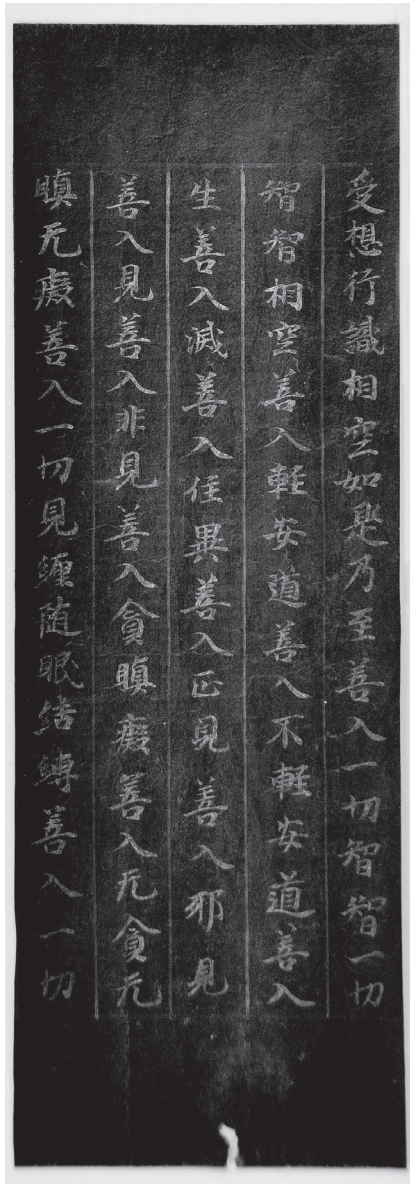 受想行識相空如是乃至善入一切智智一切
智智相空善入軽安道善入不軽安道善入
生善入滅善入住異善入正見善入邪見
善入見善入非見善入貪瞋癡善入无貪无
瞋无癡善入一切見纏随眠結縛善入一切